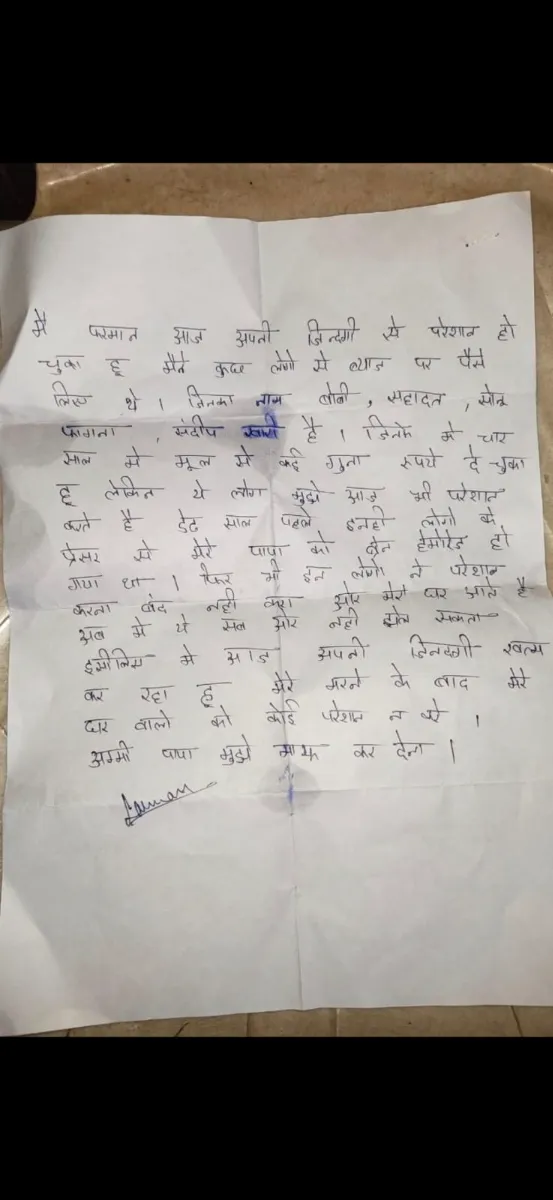 मै फरमान आज अपनी जिन्दगी से परेशान हो
चुका हू मैने कुछ लोगो से ब्याज पर पैसे
लिए थे । जिनका नाम बोबी, सहादत, सोनू
फागना, संदीप खारी है । जिनके मे चार
साल मे मूल से कई गुना रुपये दे चुका
हू लेकिन ये लोग मुझे आज भी परेशान
करते है डेढ साल पहले इनही लोगो के
प्रेसर से मेरे पापा को ब्रेन हेमोरेज हो
गया था । फिर भी इन लोगो ने परेशान
करना बंद नही करा और मेरे घर आते है
अब मे ये सब और नही झेल सकता
इसीलिए मे आज अपनी जिनदगी खत्म
कर रहा हू मेरे मरने के बाद मेरे
घर वालो को कोई परेशान न करे ।
अम्मी पापा मुझे माफ कर देना ।